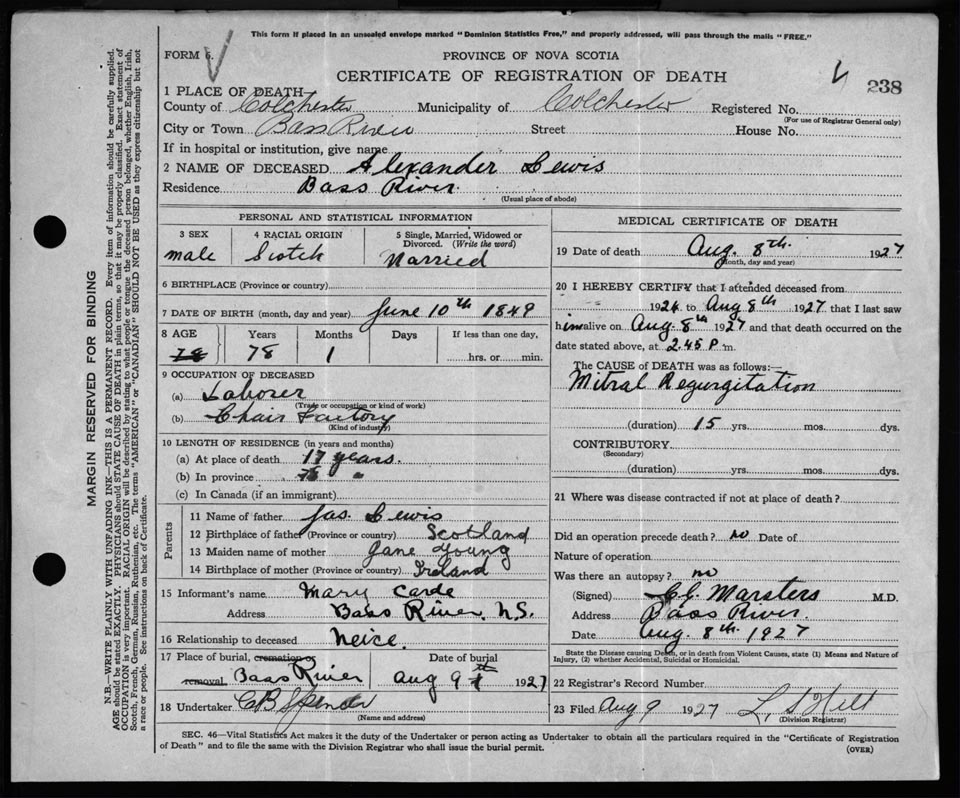 This form if placed in an unsealed envelope marked "Dominion Statistics Free," and properly addressed, will pass through the mails "FREE."
FORM 6.
PROVINCE OF NOVA SCOTIA
CERTIFICATE OF REGISTRATION OF DEATH
238
1 PLACE OF DEATH
County of Colchester Municipality of Colchester Registered No.
(For use of Registrar General only)
City or Town Bass River Street House No.
If in hospital or institution, give name
2 NAME OF DECEASED Alexander Lewis
Residence Bass River
(Usual place of abode)
MARGIN RESERVED FOR BINDING
N.B.—WRITE PLAINLY WITH UNFADING INK—THIS IS A PERMANENT RECORD. Every item of information should be carefully supplied.
AGE should be stated EXACTLY. PHYSICIANS should STATE CAUSE OF DEATH in plain terms, so that it may be properly classified. Exact statement of
OCCUPATION is very important. RACIAL ORIGIN will be described by stating to what people or tongue the deceased person belonged, whether English, Irish,
Scotch, French, German, Russian, Ruthenian, etc. The terms "AMERICAN" or "CANADIAN" SHOULD NOT BE USED as they express citizenship but not
a race or people. See instructions on back of Certificate.
PERSONAL AND STATISTICAL INFORMATION
3 SEX
male
4 RACIAL ORIGIN
Scotch
5 Single, Married, Widowed or
Divorced. (Write the word)
Married
6 BIRTHPLACE (Province or country)
7 DATE OF BIRTH (month, day and year) June 10th 1849
8 AGE Years Months Days If less than one day,
78 78 1 hrs. or min.
9 OCCUPATION OF DECEASED
(a) Laborer
(Trade or occupation or kind of work)
(b) Chair Factory
(Kind of industry)
10 LENGTH OF RESIDENCE (in years and months)
(a) At place of death 17 years.
(b) In province "
(c) In Canada (if an immigrant)
Parents
11 Name of father Jas. Lewis
12 Birthplace of father (Province or country) Scotland
13 Maiden name of mother Jane Young
14 Birthplace of mother (Province or country) Ireland
15 Informant's name Mary Carde
Address Bass River, N.S.
16 Relationship to deceased Neice.
17 Place of burial, cremation or Date of burial
removal Bass River Aug 9th 1927
18 Undertaker C B Spencer
(Name and address)
MEDICAL CERTIFICATE OF DEATH
19 Date of death Aug. 8th. 1927
(Month, day and year)
20 I HEREBY CERTIFY that I attended deceased from
1926 to Aug 8th 1927 that I last saw
him alive on Aug. 8th 1927 and that death occurred on the
date stated above, at 2.45 P m.
The CAUSE of DEATH was as follows:—
Mitral Regurgitation
(duration) 15 yrs. mos. dys.
CONTRIBUTORY.
(Secondary)
(duration) yrs. mos. dys.
21 Where was disease contracted if not at place of death?
Did an operation precede death? no Date of
Nature of operation
Was there an autopsy? no
(Signed) Marsters M.D.
Address Bass River.
Date Aug. 8th. 1927
State the Disease causing Death, or in death from Violent Causes, state (1) Means and Nature of
Injury, (2) whether Accidental, Suicidal or Homicidal.
22 Registrar's Record Number
23 Filed Aug 9 1927 L. S Hill
(Division Registrar)
SEC. 46—Vital Statistics Act makes it the duty of the Undertaker or person acting as Undertaker to obtain all the particulars required in the "Certificate of Registration
of Death" and to file the same with the Division Registrar who shall issue the burial permit. (OVER)